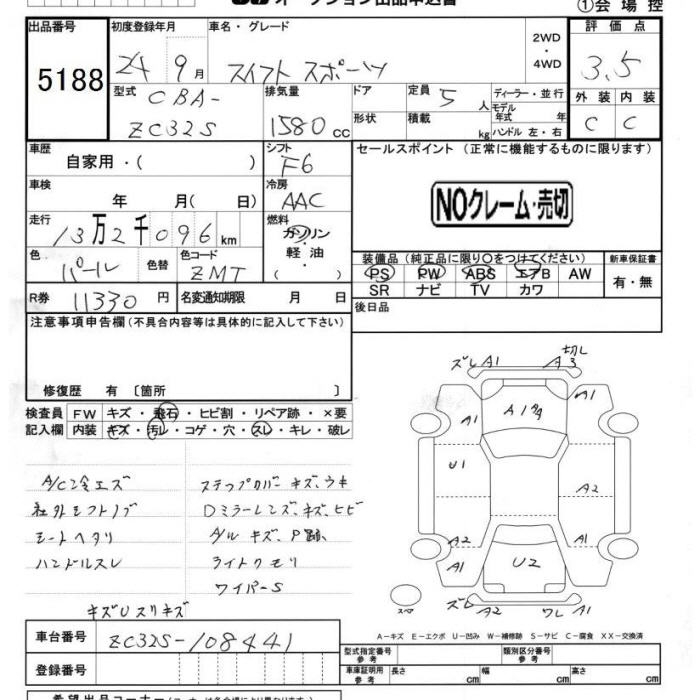 ①会場控
出品番号 初度登録年月 車名・グレード 2WD・4WD 評価点
5188 24 9月 スイフト スポーツ 3.5
型式 CBA- ZC32S 排気量 1580cc ドア 形状 定員 5人 積載 kg ディーラー・並行 モデル年式 年式 ハンドル 左・右 外装 内装
C C
車歴 自家用・( ) シフト F6 セールスポイント (正常に機能するものに限ります)
車検 年 月( 日) 冷房 AAC
NOクレーム・売切
走行 13万2千096km 燃料 ガソリン・軽油・( )
色 パール 色替 色コード ZMT
装備品 (純正品に限り○をつけてください) 新車保証書
PS PW ABS エアB AW 有・無
SR ナビ TV カワ
R券 11330円 名変通知期限 月 日
後日品
注意事項申告欄 (不具合内容等は具体的に記入して下さい)
修復歴 有 〔箇所 〕
検査員 FW キズ・飛石・ヒビ割・リペア跡・×要
記入欄 内装 キズ・汚レ・コゲ・穴・スレ・キレ・破レ
A/C冷エズ
社外シフトノブ
シートヘタリ
ハンドルスレ
ステップカバーキズ、ウキ
Dミラーレンズ、キズ、ヒビ
A/Wキズ、P跡、
ライトクモリ
ワイパーS
キズUスリキズ
ズレ A1 A3 切レ
A1 A1
U1 A2
A2 A1
A1 U2 A1
ズレ A2 ワレ A1
スペア
A-キズ E-エクボ U-凹み W-補修跡 S-サビ C-腐食 XX-交換済
車台番号 ZC32S-108441
登録番号
型式指定番号 参考 類別区分番号 参考
車庫証明用 参考 長さ cm 幅 cm 高さ cm